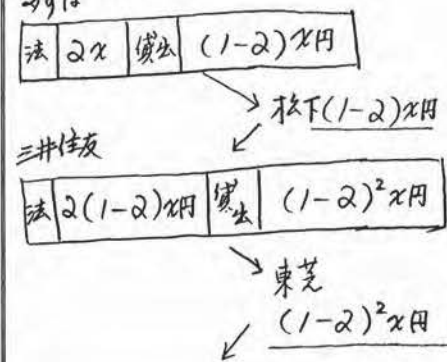 みずほ
法 2x 貸出 (1-2)x円
松下(1-2)x円
三井住友
法 2(1-2)x円 貸出 (1-2)²x円
東芝
(1-2)²x円